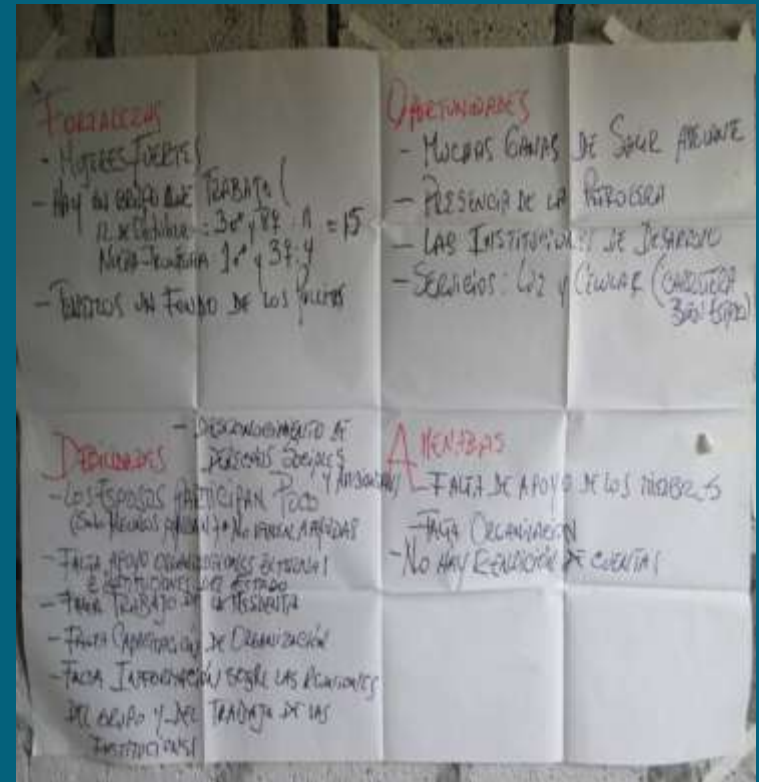 FORTALEZAS
- MUJERES FUERTES
- HAY UN GRUPO QUE TRABAJA (
12 de Octubre = 30° y 87 : 11 = 15
NUEVA 10° y 37 : 4
- TENEMOS UN FONDO DE LOS POLLITOS
OPORTUNIDADES
- MUCHAS GANAS DE SALIR ADELANTE
- PRESENCIA DE LA PETROLERA
- LAS INSTITUCIONES DE DESARROLLO
- SERVICIOS: LUZ Y CELULAR (CARRETERA
BUEN ESTADO)
DEBILIDADES
- DESCONOCIMIENTO DE
DERECHOS SOCIALES
Y
- LOS ESPOSOS PARTICIPAN POCO
NO VIENEN
- FALTA APOYO ORGANIZACIONES EXTERNAS
E INSTITUCIONES DEL ESTADO
- FALTA TRABAJO DE LA PRESIDENTA
- FALTA CAPACITACIÓN DE ORGANIZACIÓN
- FALTA INFORMACIÓN SOBRE LAS REUNIONES
DEL GRUPO Y DEL TRABAJO DE LAS
INSTITUCIONES
AMENAZAS
- FALTA DE APOYO DE LOS HOMBRES
- FALTA ORGANIZACIÓN
- NO HAY RENDICIÓN DE CUENTAS